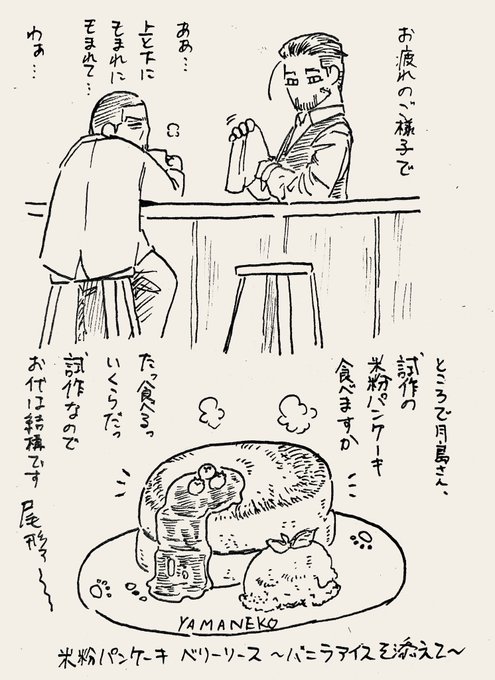 お疲れのご様子で
ああ…
上と下に
もまれに
もまれて…
わぁ…
ところで月島さん、
試作の
米粉パンケーキ
食べますか
たっ食べるっ
いくらだっ
試作なので
お代は結構です
尾形ぁ〜〜
YAMANEKO
米粉パンケーキ ベリーソース 〜バニラアイスを添えて〜